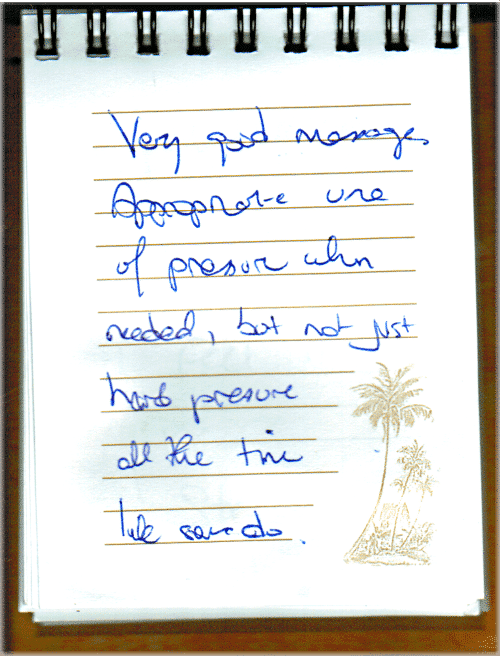 Very good massage.
Appropriate use
of presure when
needed, but not just
hard presure
all the time
like some do.